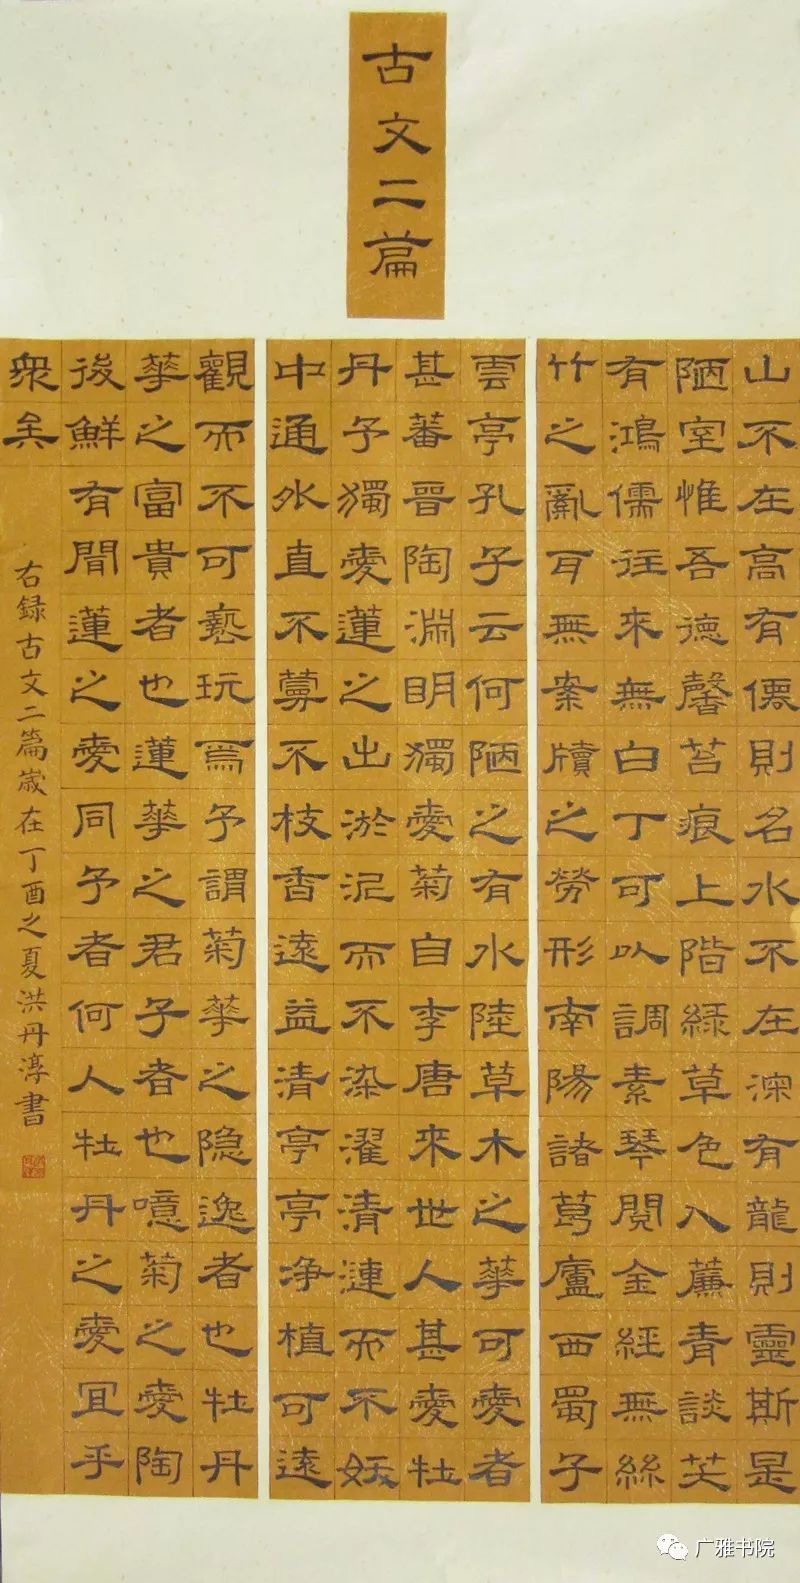 古文二篇
山不在高有僊則名水不在深有龍則靈斯是
陋室惟吾德馨苔痕上階緑草色入薕青談笑
有鴻儒往來無白丁可以調素琴閱金經無絲
竹之亂耳無案牘之勞形南陽諸葛廬西蜀子
雲亭孔子云何陋之有水陸草木之華可愛者
甚蕃晉陶淵明獨愛菊自李唐來世人甚愛牡
丹予獨愛蓮之出淤泥而不染濯清漣而不妖
中通外直不蔓不枝香遠益清亭亭净植可遠
觀而不可褻玩焉予謂菊華之隐逸者也牡丹
華之富貴者也蓮華之君子者也噫菊之愛陶
後鮮有聞蓮之愛同予者何人牡丹之愛宜乎
衆矣
右録古文二篇歲在丁酉之夏洪丹淳書
广雅书院